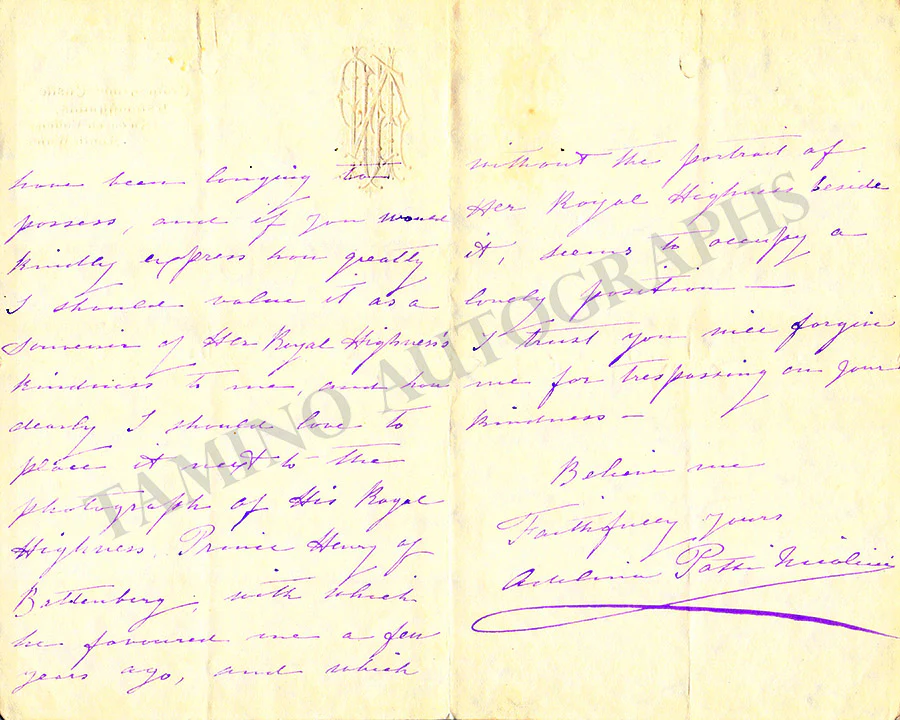 have been longing to
possess, and if you would
kindly express how greatly
I should value it as a
souvenir of Her Royal Highness's
kindness to me, and how
dearly I should love to
place it next to the
photograph of His Royal
Highness, Prince Henry of
Battenberg, with which
he favoured me a few
years ago, and which
without the portrait of
Her Royal Highness beside
it, seems to occupy a
lonely position —
I trust you will forgive
me for trespassing on your
kindness —
Believe me
Faithfully yours
Adelina Patti Nicolini
TAMINO AUTOGRAPHS